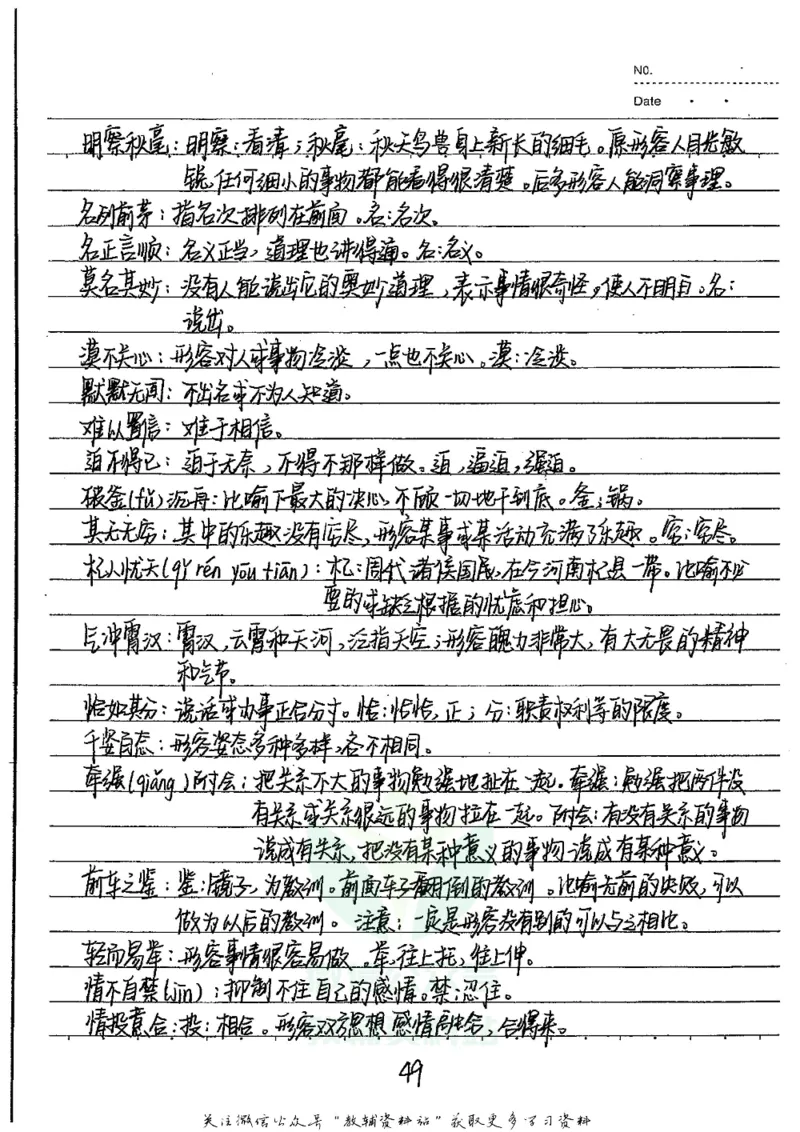 NO.
Date
明察秋毫：明察：看清；秋毫：秋天鸟兽身上新长的细毛。原形容人目光敏
锐，任何细小的事物都能看得很清楚。后多形容人能洞察事理。
名列前茅：指名次排列在前面。名：名次。
名正言顺：名义正当，道理也讲得通。名：名义。
莫名其妙：没有人能说出它的奥妙道理，表示事情很奇怪，使人不明白。名：
说出。
漠不关心：形容对人或事物冷淡，一点也不关心。漠：冷淡。
默默无闻：不出名或不为人知道。
难以置信：难于相信。
迫不得已：迫于无奈，不得不那样做。迫，逼迫，强迫。
破釜(fǔ)沉舟：比喻下最大的决心，不顾一切地干到底。釜：锅。
其无无穷：其中的乐趣没有穷尽，形容某事或某活动充满了乐趣。穷：穷尽。
杞人忧天(qǐ rén yōu tiān)：杞：周代诸侯国，在今河南杞县一带。比喻不必
要的或缺乏根据的忧虑和担心。
气冲霄汉：霄汉，云霄和天河，泛指天空；形容魄力非常大，有大无畏的精神
和气节。
恰如其分：说话或办事正合分寸。恰：恰恰，正；分：职责权利等的限度。
千姿百态：形容姿态多种多样，各不相同。
牵强(qiǎng)附会：把关系不大的事物勉强地扯在一起。牵强：勉强把两件没
有关系或关系很远的事物拉在一起。附会：有没有关系的事物
说成有关系，把没有某种意义的事物说成有某种意义。
前车之鉴：鉴：镜子，为教训。前面车子翻倒的教训。比喻先前的失败，可以
做为以后的教训。 注意：一定是形容没有别的可以与之相比。
轻而易举：形容事情很容易做。举：往上托，往上伸。
情不自禁(jīn)：抑制不住自己的感情。禁：忍住。
情投意合：投：相合。形容双方思想感情融洽，合得来。
49
关注微信公众号"教辅资料站"获取更多学习资料